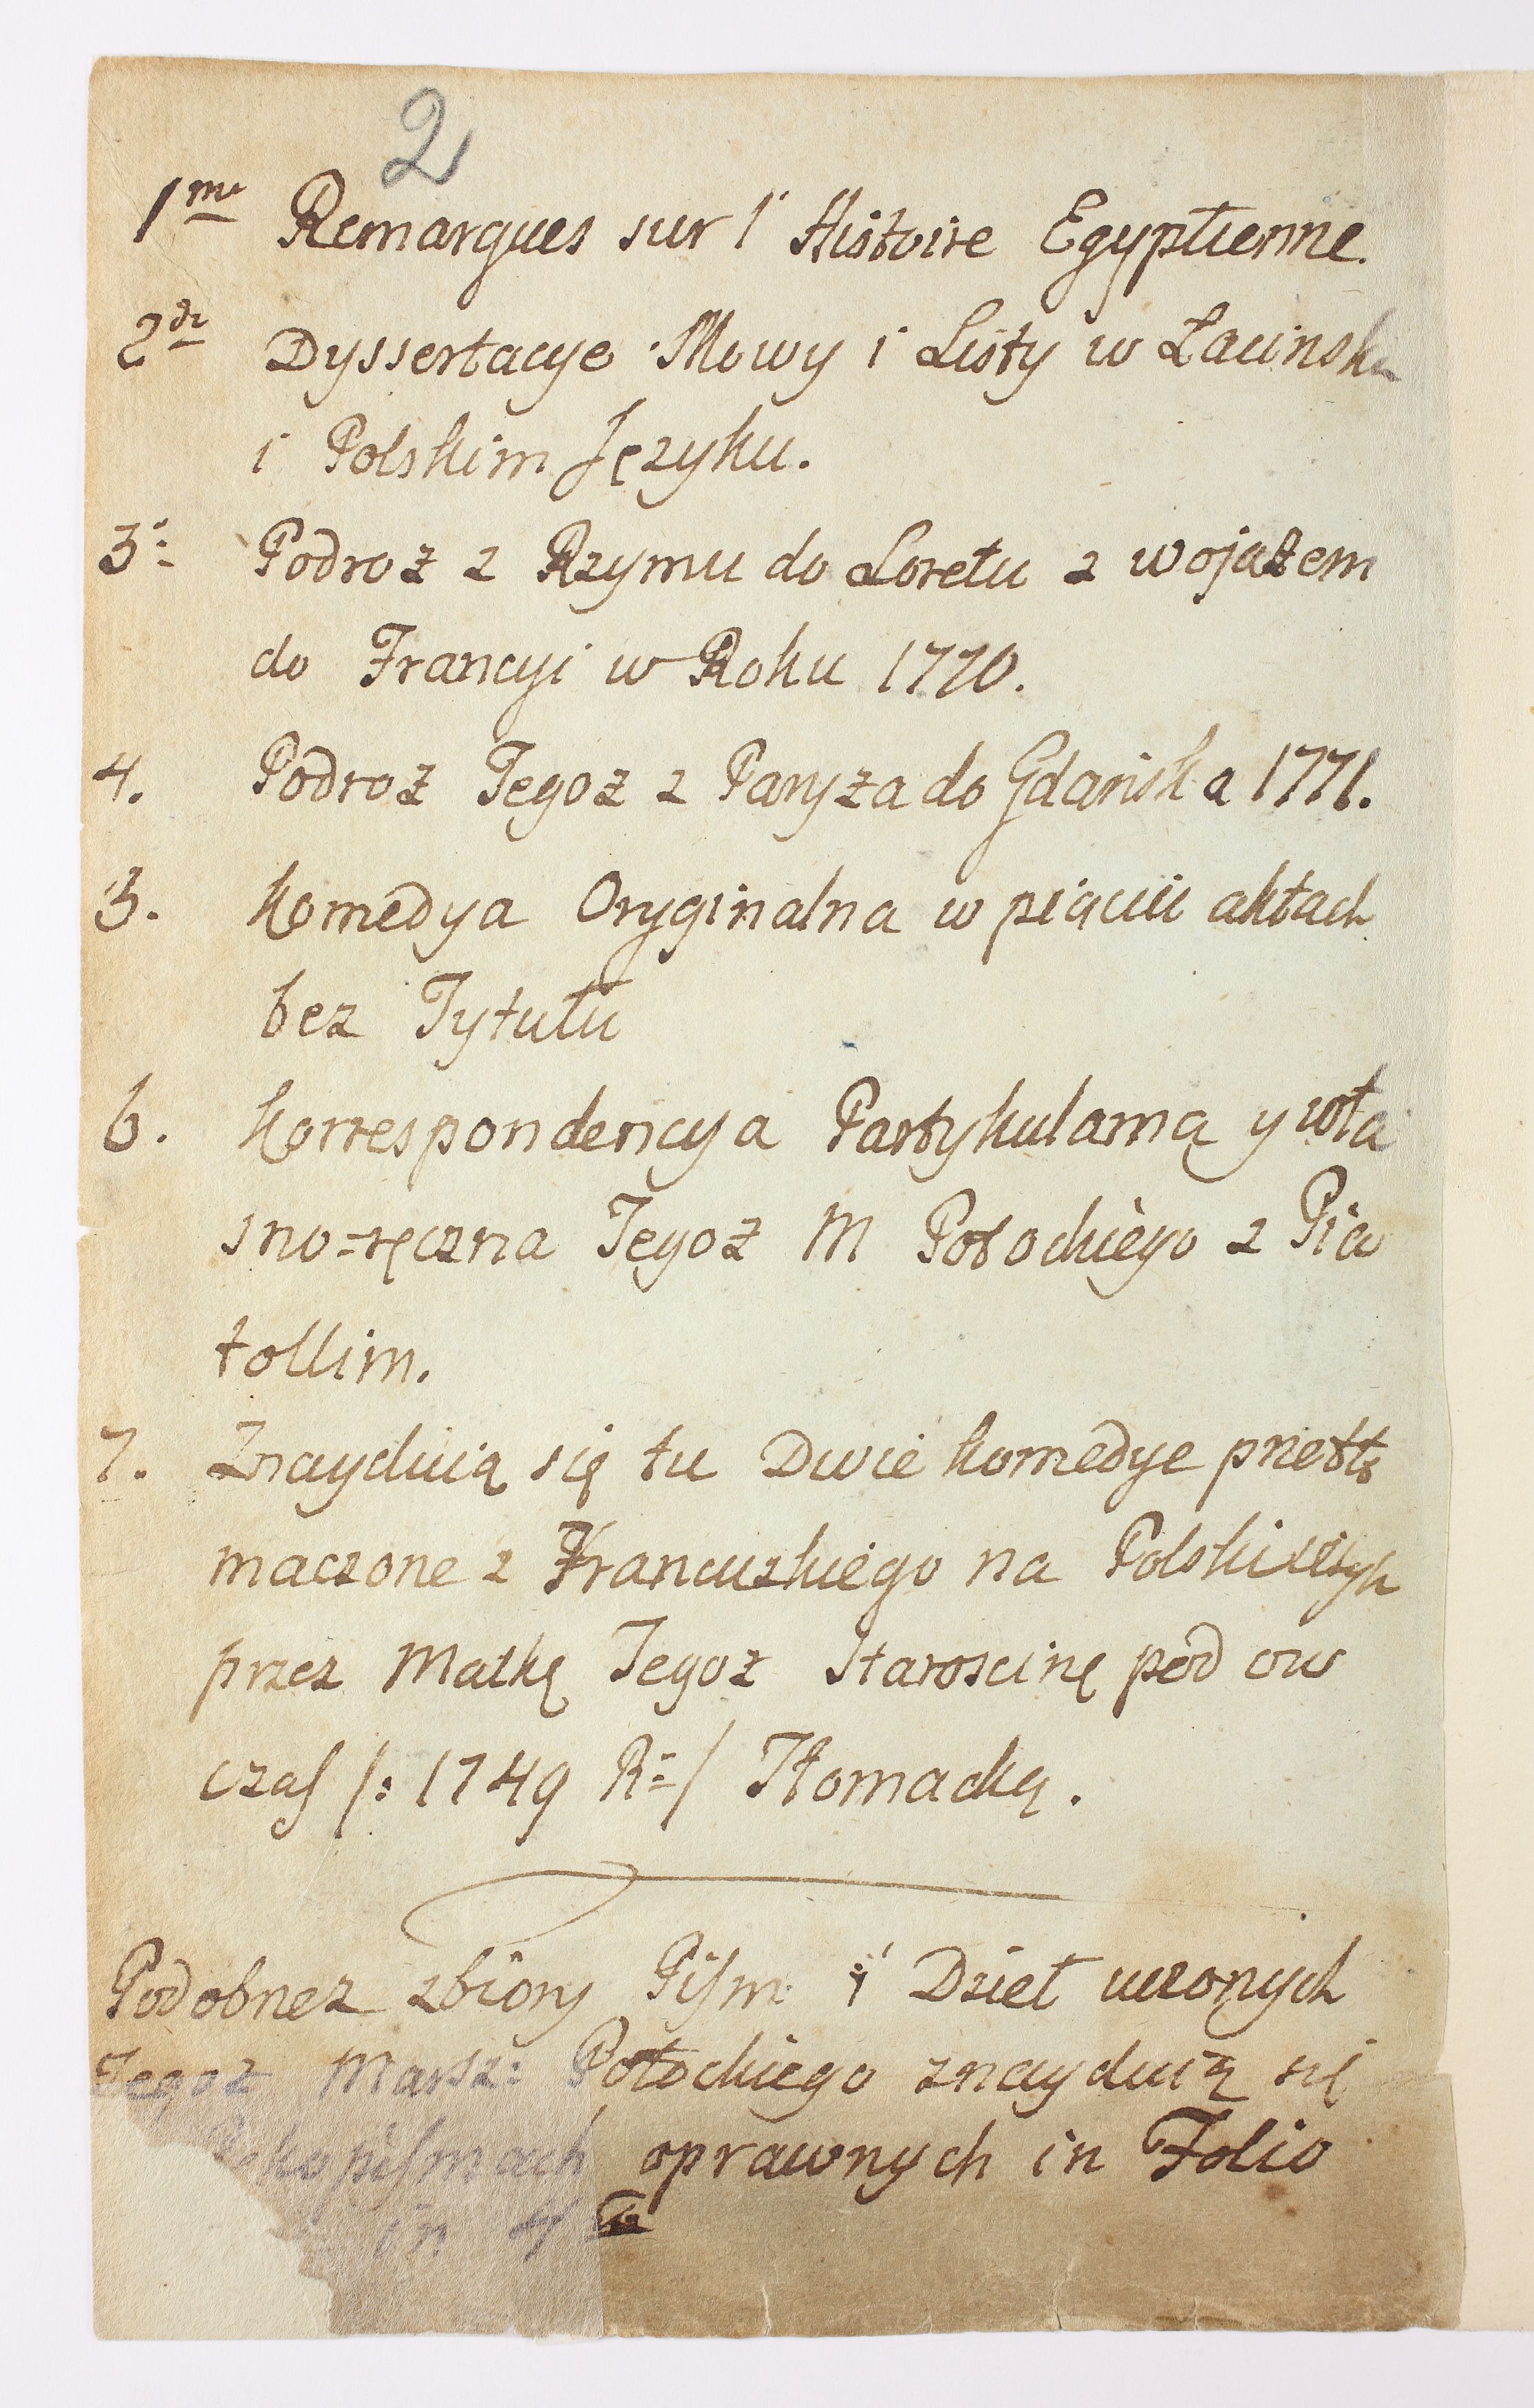 2
1me Remarques sur l' Histoire Egyptienne.
2do Dyssertacye Mowy i Listy w Łacinskim
i Polskim Języku.
3: Podroż z Rzymu do Loretu z wojażem
do Francyi w Roku 1770.
4. Podroż Tegoż z Paryża do Gdańska 1771.
5. Komedya Oryginalna w piąciu aktach
bez Tytułu
6. Korrespondencya Partykularna y wła
sno=ręczna Tegoż M Potockiego z Pia
tollim.
7. Znayduią się tu Dwie Komedye przetłó
maczone z Francuzkiego na Polski język
przez Matkę Tegoż Staroscinę pod ow
czas /: 1749 R=/ Tłomacką.
Podobnez zbiory Pism i Dzieł uczonych
Tegoż Marsz: Potockiego znayduią się
Rękopismach oprawnych in Folio
in 4to